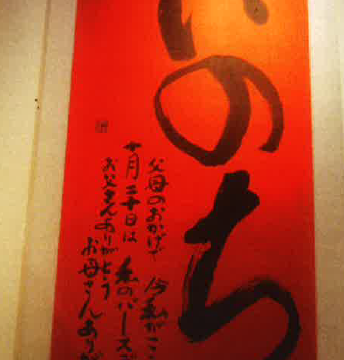 いのち
父母のおかげで 今 私がこ
十月二十日は 私のバースデ
お父さんありがとう
お母さんありが